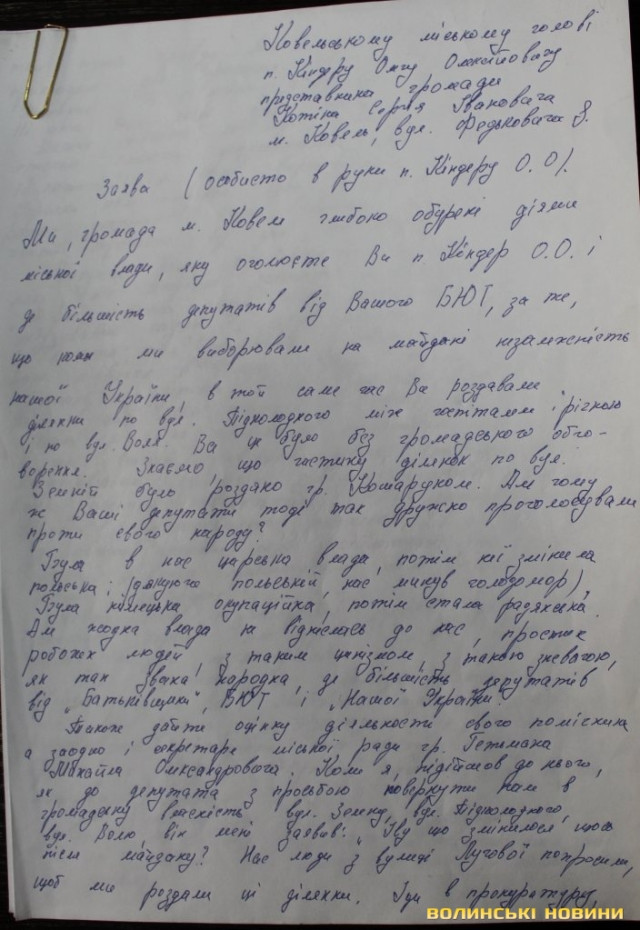 Ковельському міському голові
п. Кіндеру Олегу Олексійовичу
представника громади
Котіна Сергія Івановича
м. Ковель, вул. Федьковича 8.
Заява (особисто в руки п. Кіндеру О.О).
Ми, громада м. Ковеля глибоко обурені діями
міської влади, яку оголюєте Ви п Кіндер О.О. і
де більшість депутатів від Вашого БЮТ, за те,
що коли ми виборювали на майдані незалежність
нашої України, в той саме час Ви роздавали
ділянки по вул. між госпіталем і річкою
і по вул. Воля. Ва це було без громадського обго-
ворення. Знаємо, що частину ділянок по вул.
Зеленій було роздано гр. Кошаруком. Але чому
ж Ваші депутати тоді так дружно проголосували
проти свого народу?
Була в нас царська влада, потім її змінила
польська; (дякуючи польській, нас минув голодомор)
Була німецька окупаційна, потім стала радянська.
Але жодна влада не віднеслась до нас, простих
робочих людей, з таким цинізмом, з такою зневагою,
як так звана народна, де більшість депутатів
від "Батьківщини", БЮТ і "Нашої України".
Також дайте оцінку діяльности свого помічника
а заодно і секретаря міської ради гр. Гетьмана
Михайла Олександровича. Коли я, підійшов до нього,
як до депутата з просьбою повернути нам в
громадську власність вул. Зелену, вул.
вул. Волю він мені заявив: "Ну що змінилося щось
після майдану? Нас люди з вулиці Лугової попросили,
щоб ми роздали ці ділянки. Іди в прокуратуру,
ВОЛИНСЬКІ НОВИНИ